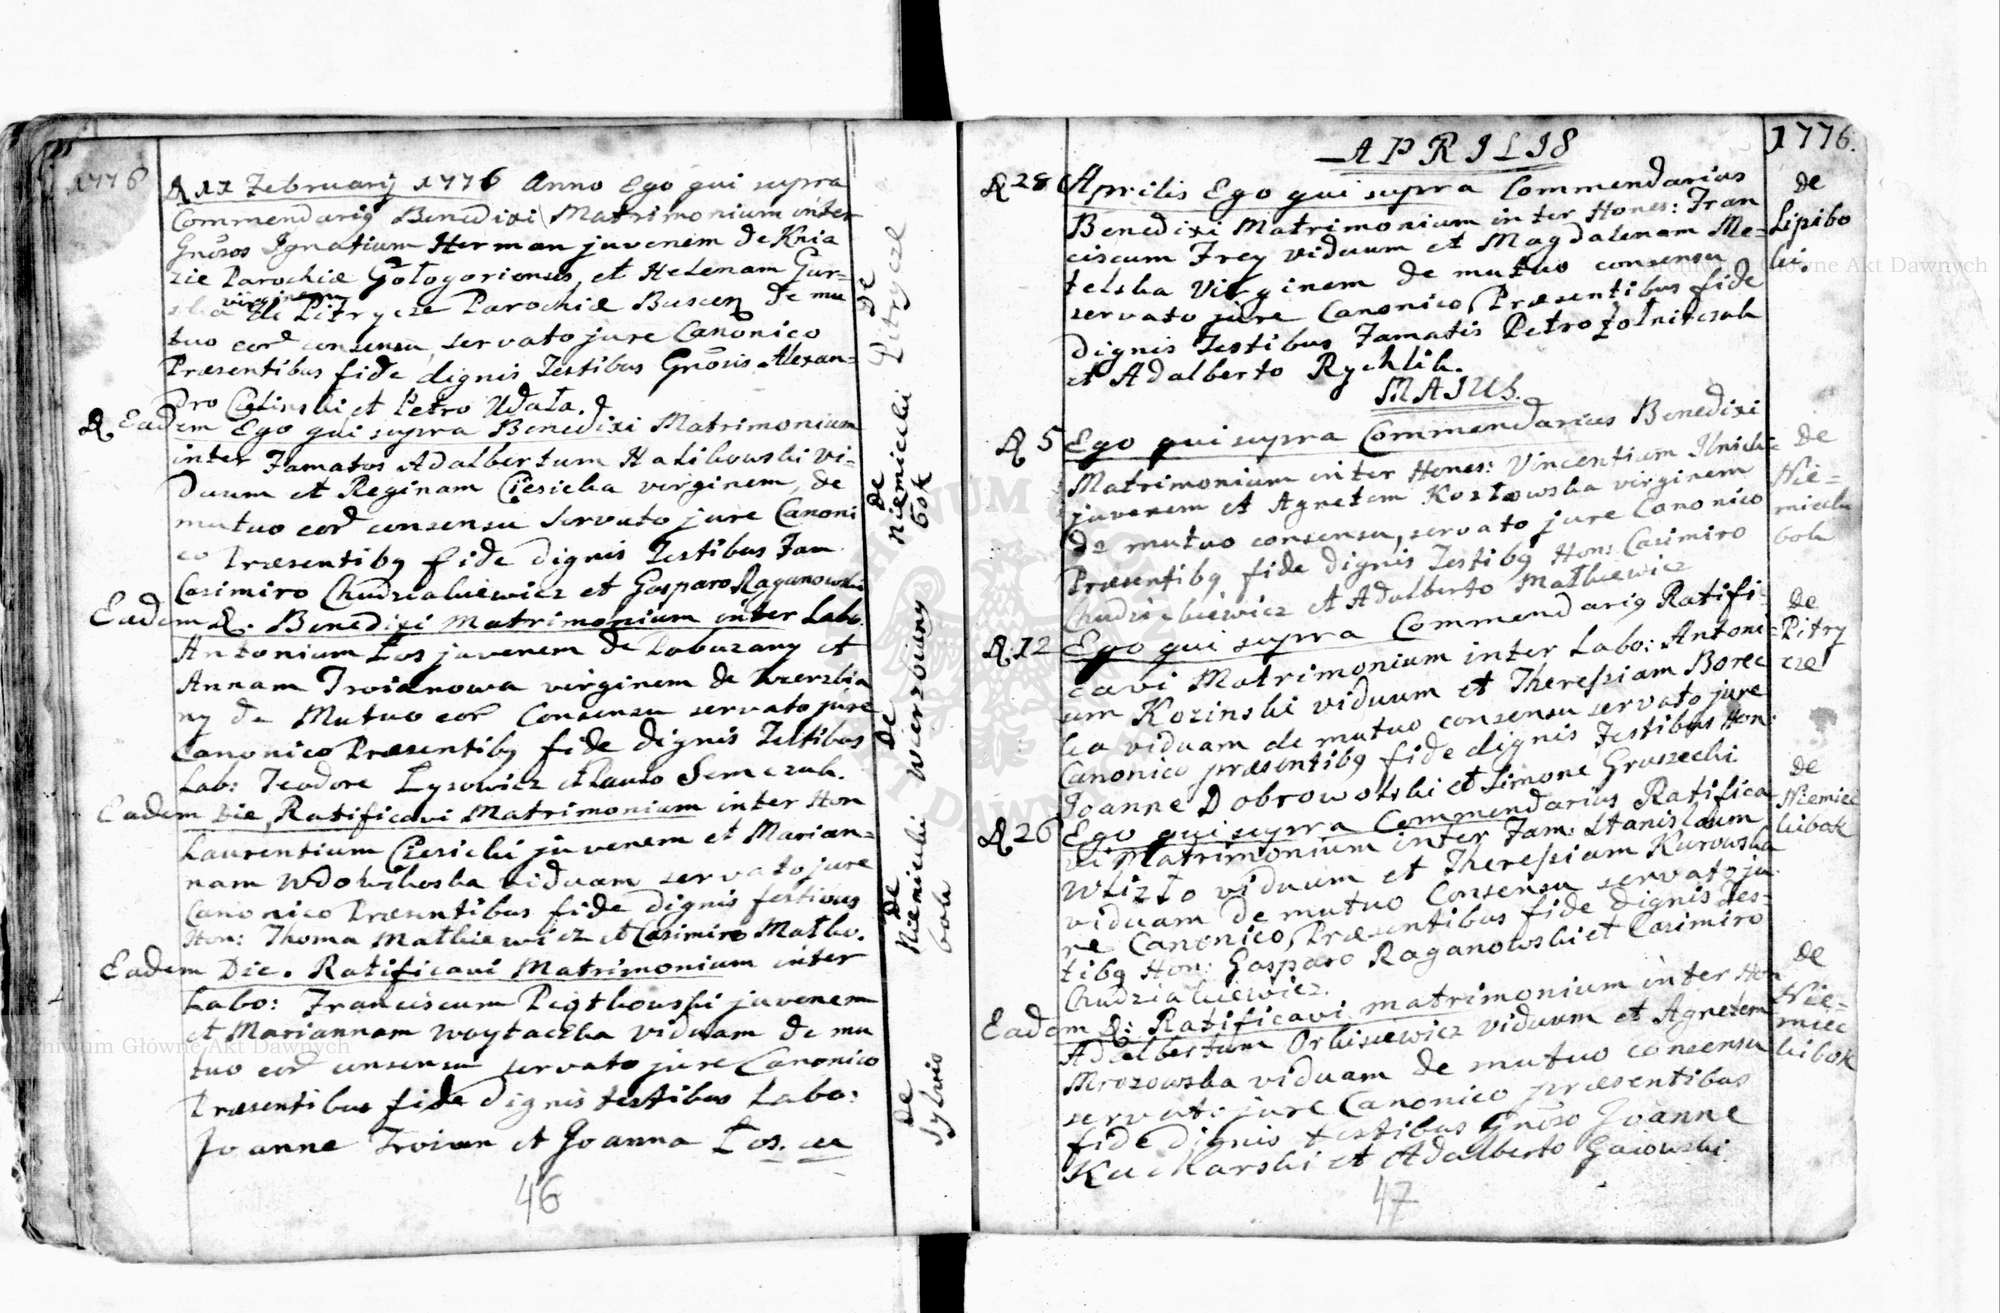 1776
A 11 Februarij 1776 Anno Ego qui supra
Commendariq Benedixi Matrimonium inter
Gnosos Ignatium Herman juvenem de Knia
zie Parochiæ Gologoriensis, et Helenam Gur=
ska virginem de Pitrycze Parochiæ Buscen de mu
tuo eor consensu, servato jure Canonico
Præsentibus fide dignis Testibus Gnosis Alexan=
dro et Petro Udała.
Eadem Ego qui supra Benedixi Matrimonium
inter Famatos Adalbertum Halikowski vi=
duum et Reginam Ciesicka virginem, de
mutuo eor consensu servato jure Canoni
co Præsentibq fide dignis Testibus Fam
Casimiro Chudziakiewicz et Gasparo Raganowski
Eadem D. Benedixi Matrimonium inter Labo.
Antonium Łos juvenem de Pobuzany et
Annam Troianowa virginem de Wierzbia
ny de Mutuo eor Consensu servato jure
Canonico Præsentibq fide dignis Testibus
Lab: Teodore Lysowicz et Paulo Semczuk.
Eadem Die, Ratificavi Matrimonium inter Hon
Laurentium Ciesicki juvenem et Marian=
nam viduam servato jure
Canonico Præsentibus fide dignis festibus
Hon: Thoma Małkiewicz et Casimiro Małko.
Eadem Die. Ratificavi Matrimonium inter
Labo: Franciscum juvenem
et Mariannam Woytaczka viduam de mu
tuo eor consensu servato jure Canonico
Præsentibus fide dignis testibus Labo:
Joanne Troian et Joanna Łos.
46
de Pitrycze
de Niemiecki
bok
de Wierzbiany
de Niemiecki
bok
de
1776.
APRILIS
D 28 Aprilis Ego qui supra Commendarius
Benedixi Matrimonium inter Hones: Fran
ciscum Frey viduum et Magdalenam Me=
telska Virginem de mutuo consensu
servato jure Canonico, Præsentibus fide
dignis Testibus Famatis Petro Żołnierczuk
et Adalberto Rychlik.
de
Lipibo
ki.
MAIUS.
D 5 Ego qui supra Commendarius Benedixi
Matrimonium inter Hones: Vincentium
juvenem et Agnetem Kozłowska virginem
de mutuo consensu, servato jure Canonico
Præsentibq fide dignis Testibq Hon: Casimiro
Chudziakiewicz et Adalberto Małkiewicz
de
Nie=
miecki
bok
D 12 Ego qui supra Commendariq Ratifi=
cavi Matrimonium inter Labo: Antoni=
um Kozinski viduum et Theressiam Borec
ka viduam de mutuo consensu servato jure
Canonico præsentibq fide dignis Testibus Hon:
Joanne Dobrowolski et Simone Gruszecki
de
Pitry
cze
D 26 Ego qui supra Commendarius Ratifica
vi Matrimonium inter Fam: Stanislaum
Wlizło viduum et Theressiam Kurowska
viduam de mutuo Consensu servato ju=
re Canonico, Præsentibus fide dignis Tes=
tibq Hon: Gasparo Raganowski et Casimiro
Chudziakiewicz.
de
Niemiec
kibok
Eadem D: Ratificavi matrimonium inter Hon
Adalbertum Orkisiewicz viduum et Agnetem
Mrozowska viduam de mutuo consensu
servato jure Canonico præsentibus
fide dignis testibus Gnoso Joanne
Kucharski et Adalberto Gaiowski
de
Nie=
miec
kibok
47
Archiwum Główne Akt Dawnych